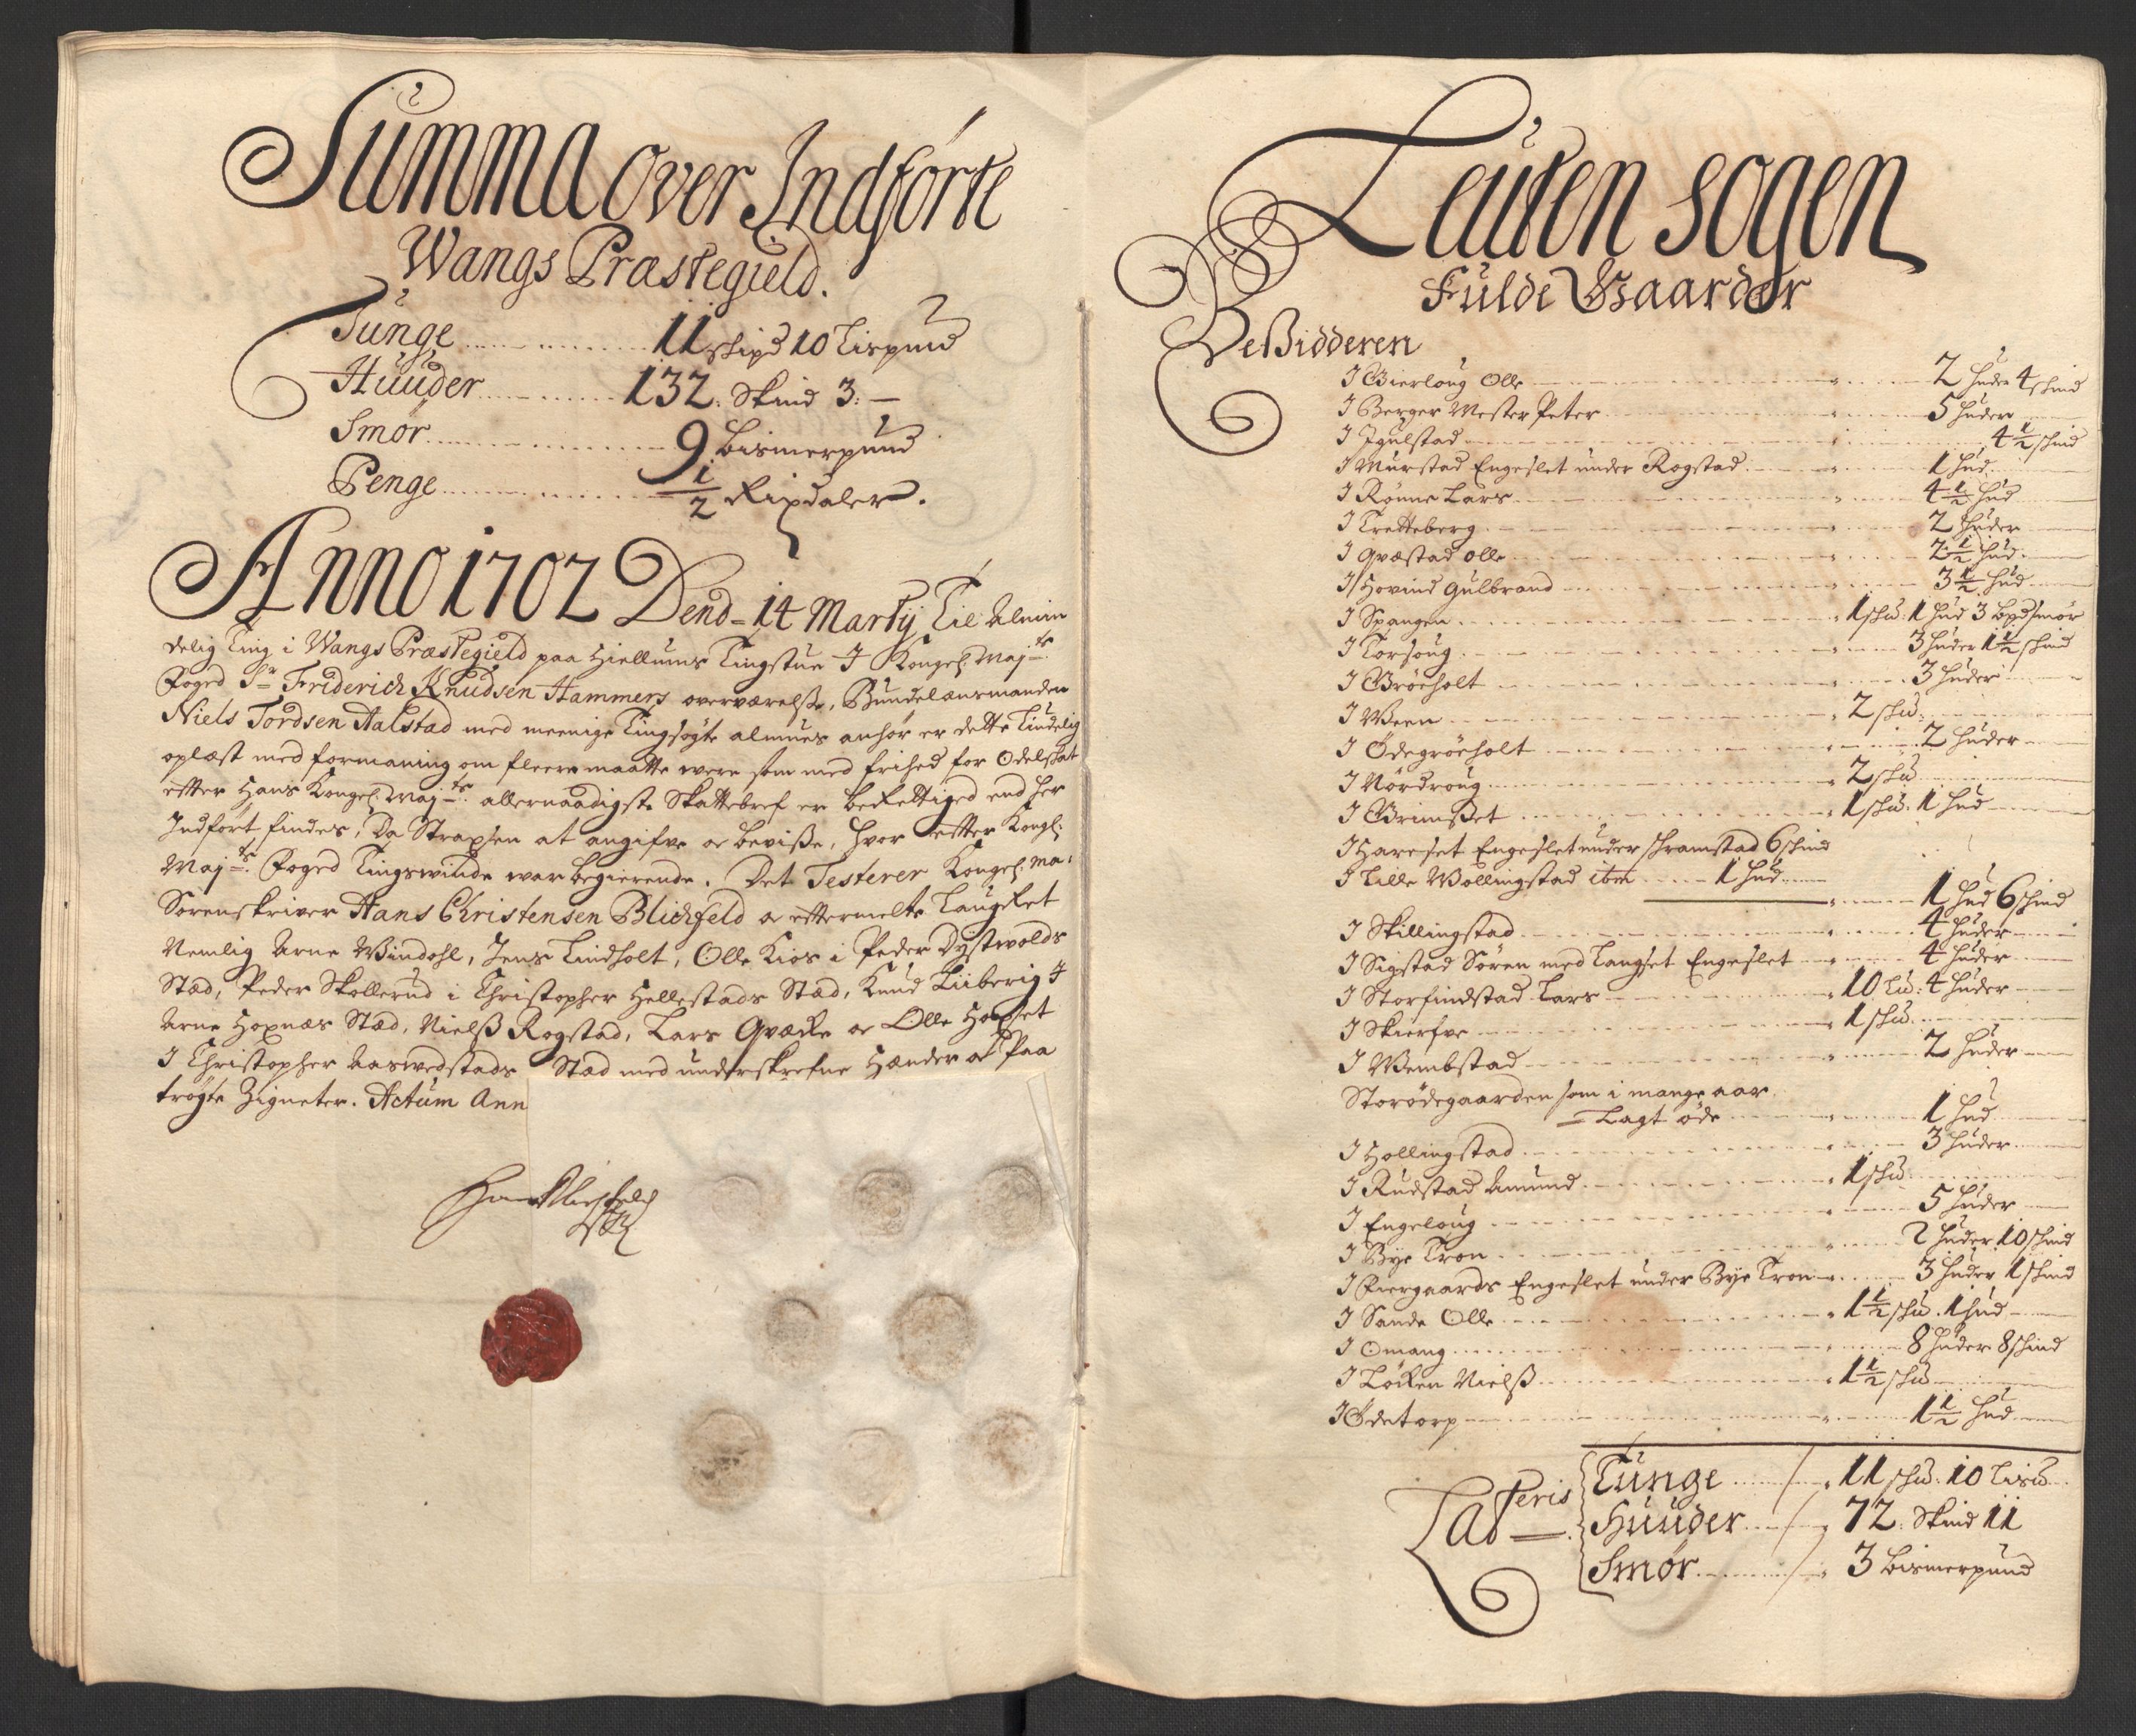 Summa over Indførte
Wangs Præstegield.
Tunge 11 skipd 10 Lispund
Huuder 132. Skind 3.
Smør 9 bismerpund
Penge 1/2 Rixdaler.
Anno 1702 Dend 14 Martij Til Almin
delig Ting i Wangs Præstegield paa Hiellums Tingstue I Kongel. Maj.ts
Foged Sr. Friderich Knudsen Hammers overværelse, Bundelænsmanden
Niels Tordsen Aalstad med meenige Tingsøgte almues anhør er dette Tiudelig
oplæst med formaning om fleere maatte were som med frihed for Odelskat
efter Hans Kongel. Maj.ts allernaadigste Skattebref er berettiged end her
Indført findes, Da Straxsen at angifve oc bevisse, hvor efter Kongl.
Maj.ts Foged Tingswinde war begierende. Det Testerer Kongel. Ma.
Sorenskriver Hans Christensen Blichfeld oc eftermelte Laugret
Nemlig Arne Windohl, Jens Lindholt, Olle Kios i Peder Dystwolds
Stæd, Peder Skollerud i Christopher Hellestads Stæd, Knud Liiberig I
Arne Hoxnæs Stæd, Nielss Rogstad, Lars Qværke oc Olle Horset
I Christopher Aaswedstads Stæd med underskrefne Hænder oc Paa
trøgte Zigneter. Actum Ann
Hans Blichfeld
Leuten sogen
Fulde Gaarder
Bessidderen
I Gierloug Olle 2 huder 4 skind
I Berger Wester Peter 5 huder
I Igulstad 4 1/2 skind
I Murstad Engeslet under Rogstad 1 hud
I Rønne Lars 4 1/2 hud
I Tretteberg 2 huder
I Qvæstad Olle 2 1/2 hud
I Hovind Gulbrand 3 1/2 hud
I Spangen 1 skd. 1 hud 3 bpd smør
I Torsoug 3 huder 1 1/2 skind
I Grøeholt 3 huder
I Ween 2 skd.
I Ødegrøeholt 2 huder
I Nordroug 2 skd
I Grimsset 1 skd. 1 hud
I Hareset Engeslet under Skramstad 6 skind
I Lille Wollingstad ibm 1 hud
1 hud 6 skind
I Skillingstad 4 huder
I Sigstad Søren med Langset Engeslet 4 huder
I Storfindstad Lars 10 Ld. 4 huder
I Skierfve 1 skd.
I Wembstad 2 huder
Storødegaarden som i mange aar
Lagt øde 1 hud
I Hollingstad 3 huder
I Rudstad Amund 1 skd
I Engeloug 5 huder
I Bye Tron 2 huder 10 skind
I Fiergaards Engeslet under Bye Tron 3 huder 1 skind
I Sande Olle 1 1/2 skd. 1 hud
I Omang 8 huder 8 skind
I Løcken Nielss 1 1/2 skd
I Ødetorp 1 1/2 hud
Lateris Tunge 11 skd. 10 Lisd
Huuder 72. Skind 11
Smør 3 bismerpund